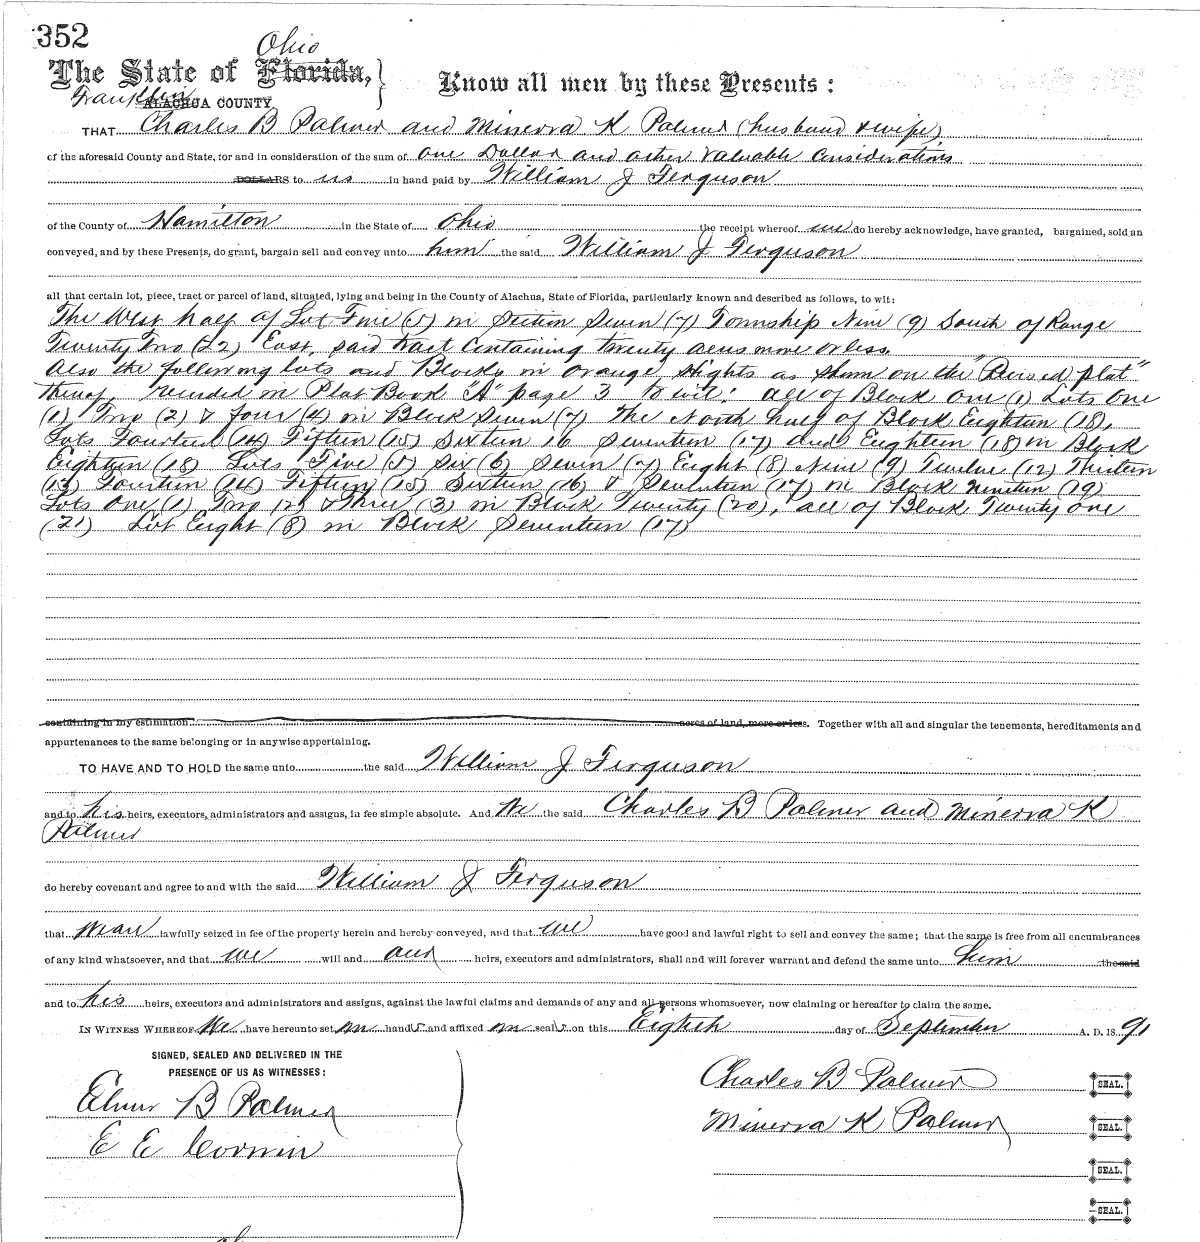 352
Ohio
The State of Florida,
Know all men by these Presents :
Franklin
ALACHUA COUNTY
THAT Charles B Palmer and Minerva K Palmer (husband & wife)
of the aforesaid County and State, for and in consideration of the sum of one Dollar and other valuable considerations
DOLLARS to us in hand paid by William J Ferguson
of the County of Hamilton in the State of Ohio the receipt whereof we do hereby acknowledge, have granted, bargained, sold an
conveyed, and by these Presents, do grant, bargain sell and convey unto him the said William J Ferguson
all that certain lot, piece, tract or parcel of land, situated, lying and being in the County of Alachua, State of Florida, particularly known and described as follows, to wit:
The West half of Lot Five (5) in Section Seven (7) Township Nine (9) South of Range
Twenty Two (22) East, said tract containing twenty acres more or less.
Also the following lots and Blocks in Orange Hights as shown on the "Revised plat"
thereof, recorded in Plat Book "A" page 3 to wit; all of Block One (1) Lots One
(1) Two (2) & four (4) in Block Seven (7) The North half of Block Eighteen (18),
Lots Fourteen (14) Fifteen (15) Sixteen 16 Seventeen (17) and Eighteen (18) in Block
Eighteen (18) Lots Five (5) Six (6) Seven (7) Eight (8) Nine (9) Twelve (12) Thirteen
(13) Fourteen (14) Fifteen (15) Sixteen (16) & Seventeen (17) in Block Nineteen (19)
Lots One (1) Two (2) & Three (3) in Block Twenty (20), all of Block Twenty One
(21) Lot Eight (8) in Block Seventeen (17)
containing in my estimation acres of land, more or less. Together with all and singular the tenements, hereditaments and
appurtenances to the same belonging or in anywise appertaining.
TO HAVE AND TO HOLD the same unto the said William J Ferguson
and to his heirs, executors, administrators and assigns, in fee simple absolute. And We the said Charles B Palmer and Minerva K
Palmer
do hereby covenant and agree to and with the said William J Ferguson
that we are lawfully seized in fee of the property herein and hereby conveyed, and that we have good and lawful right to sell and convey the same ; that the same is free from all encumbrances
of any kind whatsoever, and that we will and our heirs, executors and administrators, shall and will forever warrant and defend the same unto him the said
and to his heirs, executors and administrators and assigns, against the lawful claims and demands of any and all persons whomsoever, now claiming or hereafter to claim the same.
IN WITNESS WHEREOF We have hereunto set our hands and affixed our seals on this Eighth day of September A. D. 1891
SIGNED, SEALED AND DELIVERED IN THE
PRESENCE OF US AS WITNESSES :
Charles B Palmer SEAL.
Elmer B Palmer
Minerva K Palmer SEAL.
E E Corwin
SEAL.
SEAL.